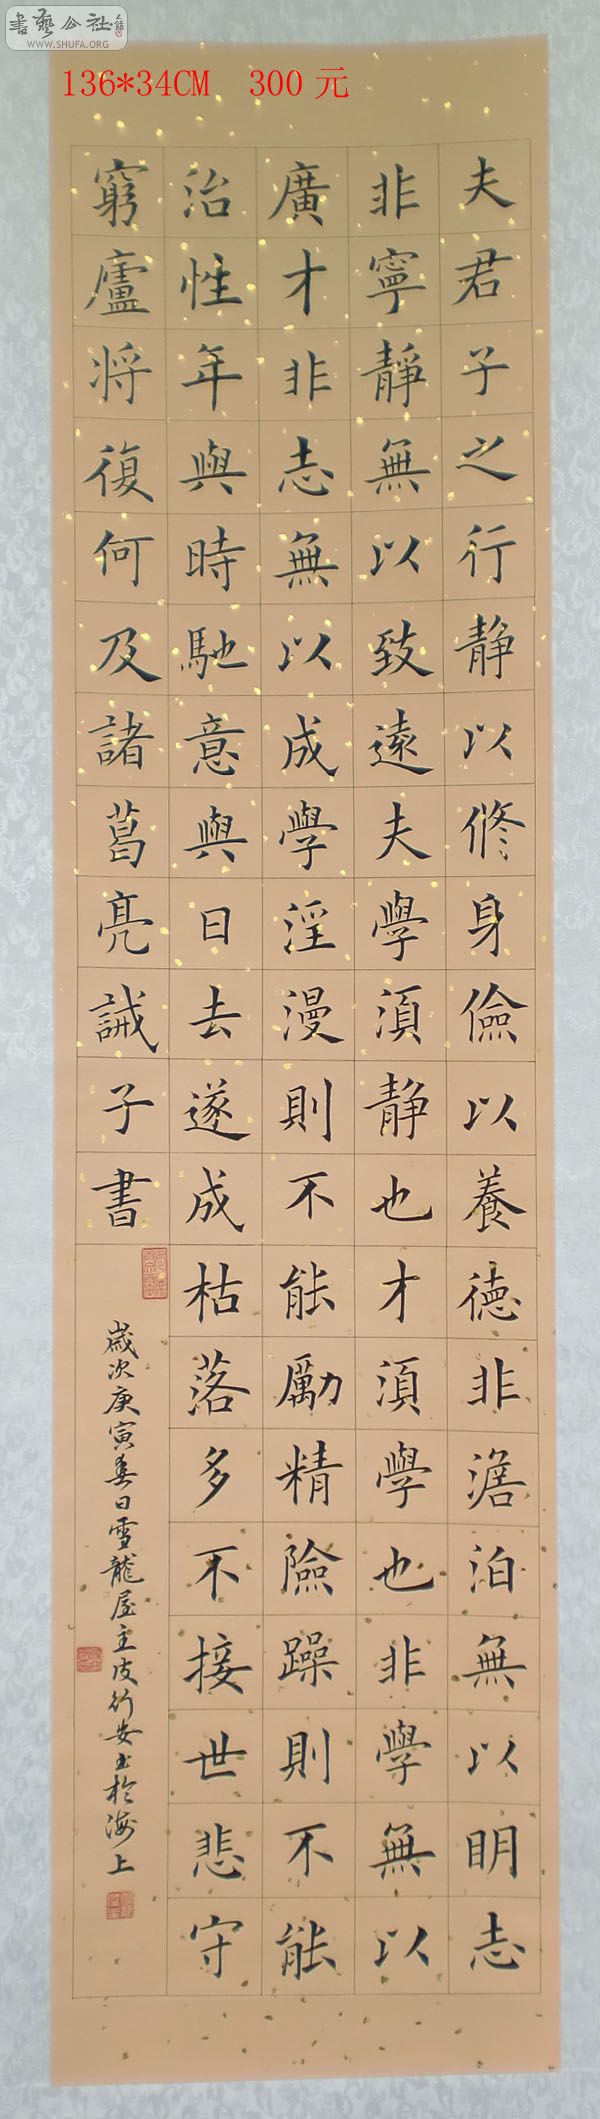 書藝公社
WWW.SHUFA.ORG
136*34CM 300 元
夫君子之行靜以修身儉以養德非澹泊無以明志
非寧靜無以致遠夫學須靜也才須學也非學無以
廣才非志無以成學淫漫則不能勵精險躁則不能
治性年與時馳意與日去遂成枯落多不接世悲守
窮廬將復何及諸葛亮誡子書
歲次庚寅春日雪龍屋主皮行安書於海上